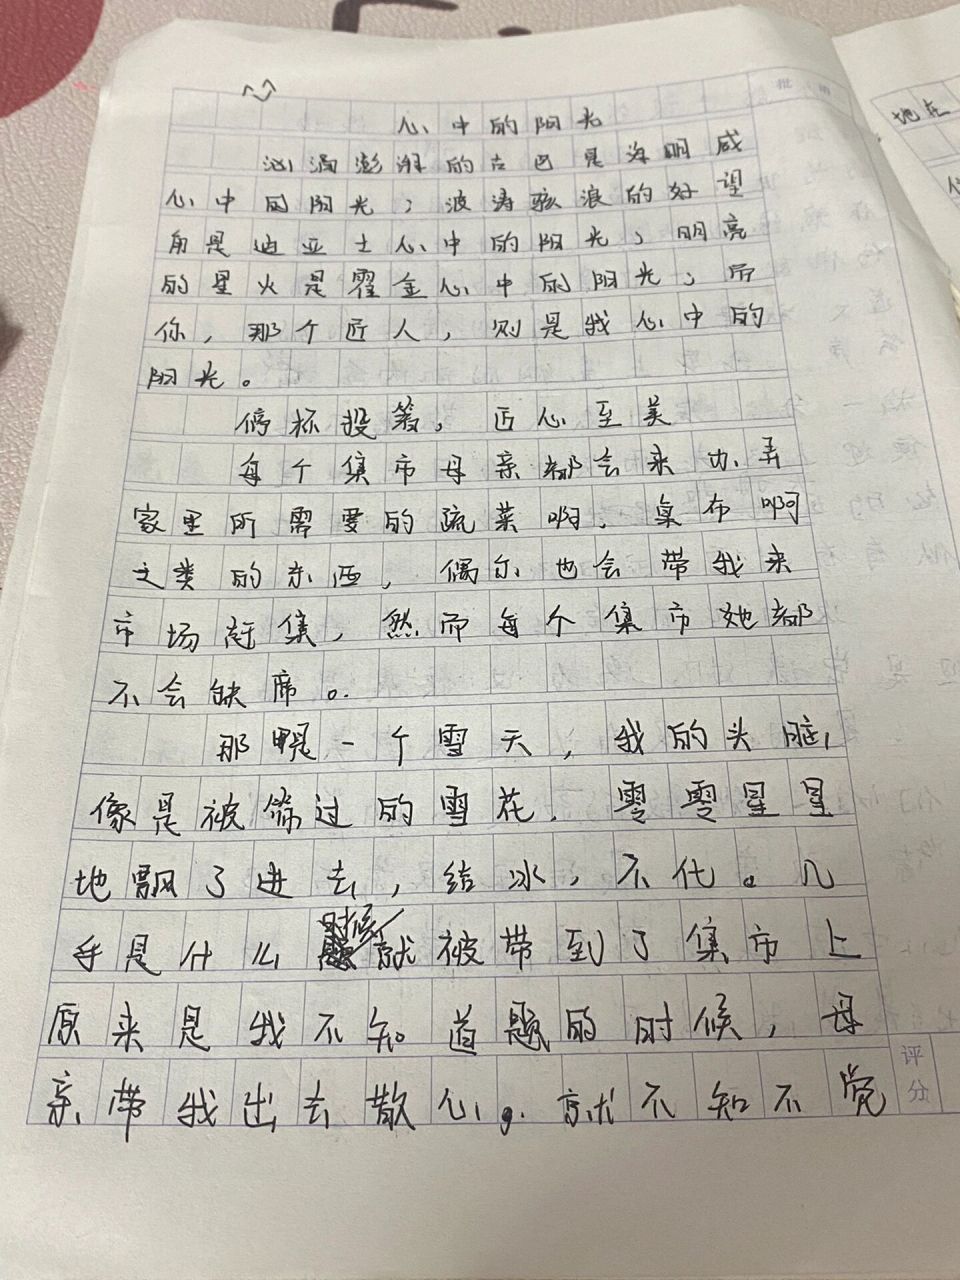 心中的阳光
汹涌澎湃的古巴是海明威
心中的阳光；波涛骇浪的好望
角是迪亚士心中的阳光；明亮
的星火是霍金心中的阳光；而
你，那个匠人，则是我心中的
阳光。
停杯投箸，匠心至美
每个集市母亲都会来办弄
家里所需要的蔬菜啊、桌布啊
之类的东西，偶尔也会带我来
市场赶集，然而每个集市她都
不会缺席。
那是一个雪天，我的头脑
像是被筛过的雪花，零零星星
地飘了进去，结冰，不化。几
乎是什么时候就被带到了集市上
原来是我不知道题的时候，母
亲带我出去散心。就不知不觉
批
评
分
地在